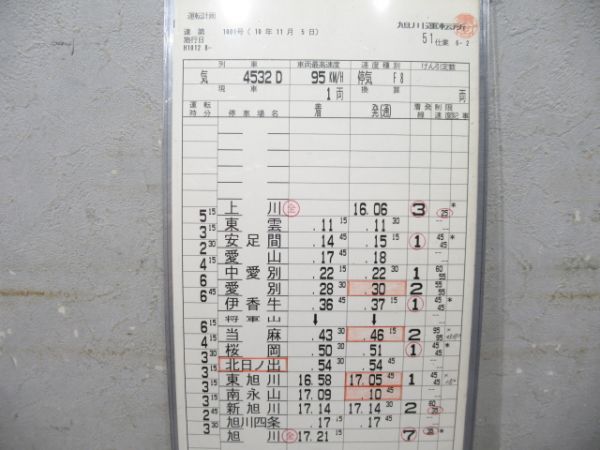 運転計画
達第 1001号(10年11月 5日)
施行日
H1012 8-
旭川運転所
51仕業 6-2
列車 車両最高速度 速度種別 けん引定数
気 4532D 95KM/H 停気 F8
現車 1両 換算 両
運転時分 停車場名 着 発(通) 着発線 制限速度 記事
上川 全 16.06 3 25 *
5 15 東雲 .11 15 .11 30
3 安足間 .14 45 .15 15 1 45 45 *
2 30 愛山 .17 45 .18
4 15 中愛別 .22 15 .22 30 1 60 55
6 愛別 .28 30 .30 2 55 55
6 45 伊香牛 .36 45 .37 15 1 45 45 *
将軍山 ↓ ↓
6 当麻 .43 30 .46 15 2 95
4 15 桜岡 .50 30 .51 1 45 45 *
3 30 北日ノ出 .54 30 .54 45
3 15 東旭川 16.58 17.05 45 1 45
3 15 南永山 17.09 .10 45
3 新旭川 17.14 17.14 30 2 60
2 45 旭川四条 .17 15 .17 45
3 旭川 全 17.21 15 7 *